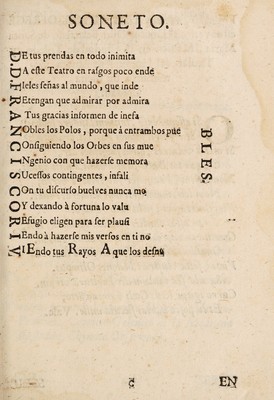 SONETO.
DE tus prendas en todo inimita
DA eſte Teatro en raſgos poco ende
FIeles ſeñas al mundo, que inde
REtengan que admirar por admira
A Tus gracias informen de inefa
NObles los Polos, porque à entrambos pue
COnſiguiendo los Orbes en ſus mue
INgenio con que hazerſe memora
SUceſſos contingentes, infali
COn tu diſcurſo buelves nunca mo
OY dexando à fortuna lo valu
REfugio eligen para ſer plauſi
IEndo à hazerſe mis verſos en ti no
VIEndo tus Rayos A que los deſnu
BLES.
ç EN